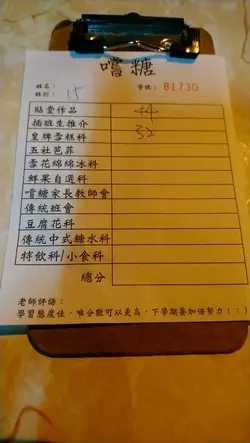 嚐糖
姓名：
學號：81730
班別：15
貼堂作品 44
插班生推介
皇牌雪糕科 32
五社芭菲
雪花綿綿冰科
鮮果自選科
嚐糖家長教師會
傳統班會
豆腐花科
傳統中式糖水科
特飲科/小食科
總分
老師評語：
學習態度佳，唯分數可以更高，下學期要加倍努力！:)